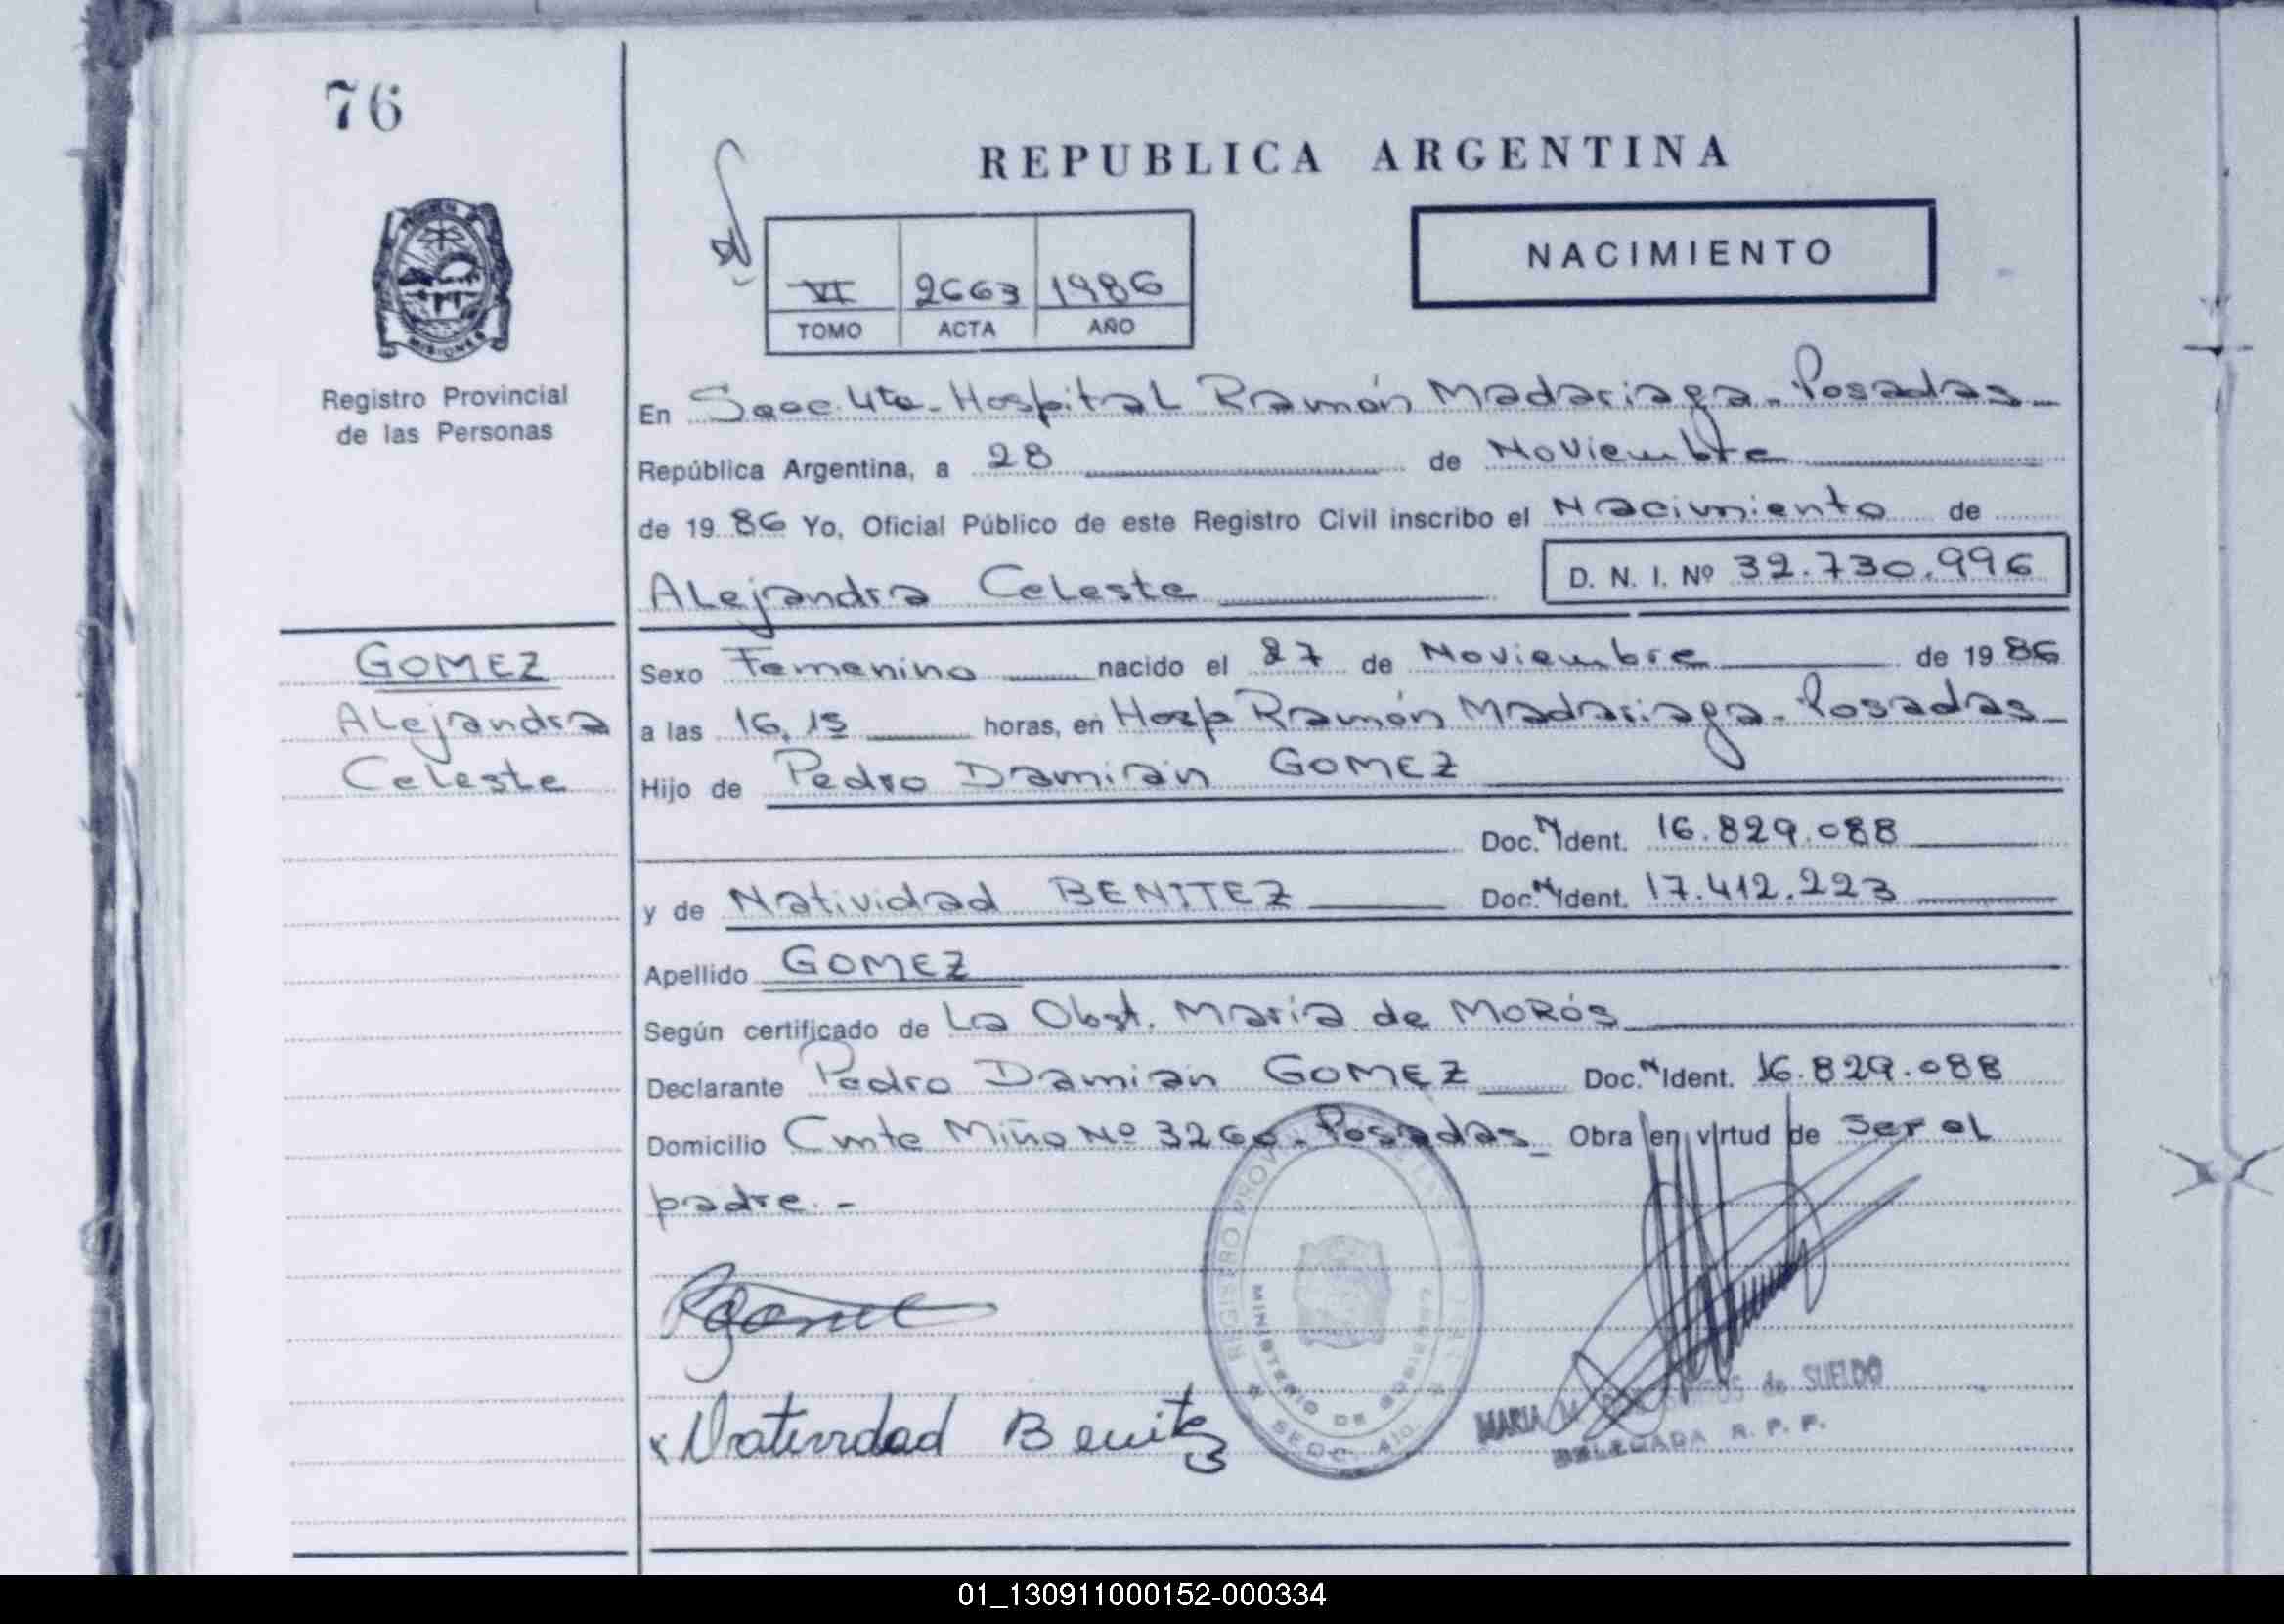 76
REPUBLICA ARGENTINA
NACIMIENTO
VI 2663 1986
TOMO ACTA AÑO
MISIONES
Registro Provincial
de las Personas
En Secc. 4ta - Hospital Ramón Madariaga - Posadas
República Argentina, a 28 de Noviembre
de 1986 Yo, Oficial Público de este Registro Civil inscribo el Nacimiento de
Alejandra Celeste
D. N. I. Nº 32.730.996
GOMEZ
Alejandra
Celeste
Sexo Femenino nacido el 27 de Noviembre de 1986
a las 16,15 horas, en Hosp Ramón Madariaga - Posadas
Hijo de Pedro Damián GOMEZ
Doc. N Ident. 16.829.088
y de Natividad BENITEZ Doc. N Ident. 17.412.223
Apellido GOMEZ
Según certificado de La Obst. María de MORÓS
Declarante Pedro Damián GOMEZ Doc. N Ident. 16.829.088
Domicilio Cmte Miño Nº 3260 - Posadas Obra en virtud de ser el
padre. -
REGISTRO PROVINCIAL
MINISTERIO DE GOBIERNO
SECC. 4ta.
x Natividad Benitez
MARIA M. de SUELDO
DELEGADA R. P. P.
01_130911000152-000334